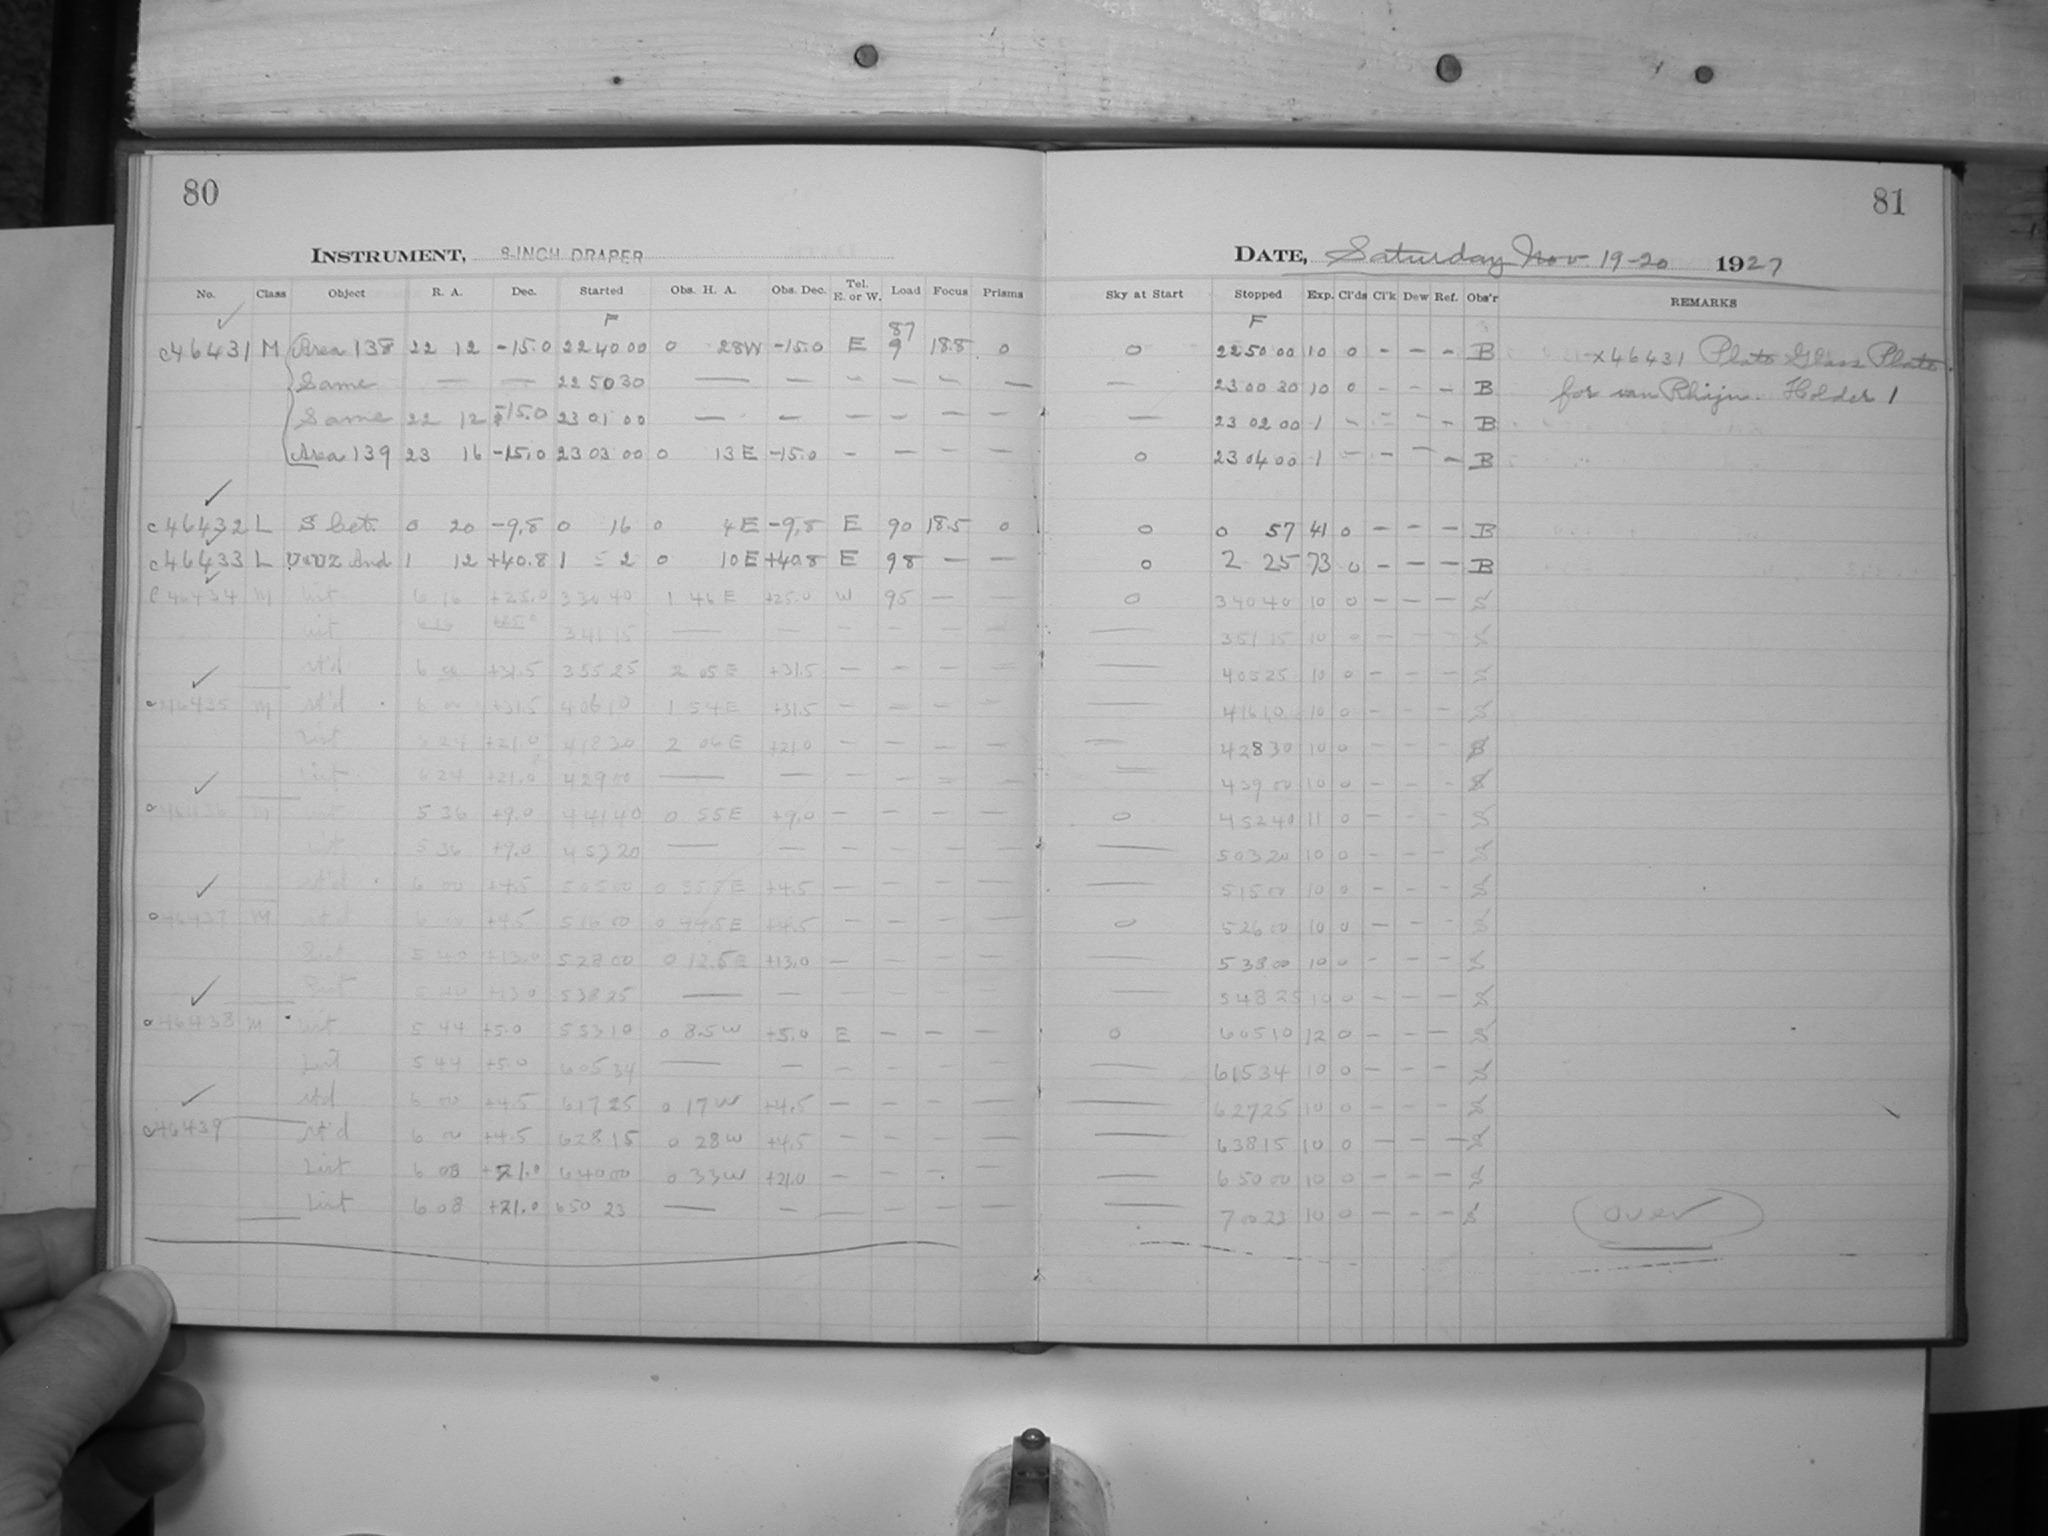 80
INSTRUMENT, 8-INCH DRAPER
No. Class Object R. A. Dec. Started Obs. H. A. Obs. Dec. Tel. E. or W. Load Focus Prisms
F
c46431 M Area 138 22 12 -15.0 22 40 00 0 28W -15.0 E 87 9 18.8 0
Same — — 22 50 30 — — – — – —
Same 22 12 -15.0 23 01 00 — — — — — —
Area 139 23 16 -15.0 23 03 00 0 13 E -15.0 – — — —
c46432 L S Cet. 0 20 -9.8 0 16 0 4 E -9.8 E 90 18.5 0
c46433 L And 1 12 +40.8 1 2 0 10 E +40.8 E 98 — —
c46434 M List 6 16 +25.0 3 30 40 1 46 E +25.0 W 95 — —
List 3 41 15 — — – — — —
st'd 6 +31.5 3 55 25 2 05 E +31.5 — – — —
c46435 M st'd 6 00 +31.5 4 06 10 1 54 E +31.5 — – — —
List 24 +21.0 4 18 30 2 06 E +21.0 — — — —
List 24 +21.0 4 29 00 — — — – — —
c46436 M List 5 36 +9.0 4 41 40 0 55 E +9.0 — — — —
List 5 36 +9.0 4 53 20 — — — — — —
st'd 6 00 +4.5 5 05 00 0 E +4.5 — — — —
c46437 M st'd 6 00 +4.5 5 16 00 0 E +4.5 — — — —
List 5 40 +13.0 5 28 00 0 12.5 E +13.0 — — — —
List 5 40 +13.0 5 38 25 — — — — — —
c46438 M List 5 44 +5.0 5 53 10 0 8.5 W +5.0 E — — —
List 5 44 +5.0 6 05 34 — — — — — —
std 6 00 +4.5 6 17 25 0 17 W +4.5 — — — —
c46439 st'd 6 00 +4.5 6 28 15 0 28 W +4.5 — — — —
List 6 08 +21.0 6 40 00 0 33 W +21.0 — — — —
List 6 08 +21.0 6 50 23 — — — — — —
81
DATE, Saturday Nov 19-20 1927
Sky at Start Stopped Exp. Cl'ds Cl'k Dew Ref. Obs'r REMARKS
F
0 22 50 00 10 0 – – – B x46431 Plate Glass Plate
— 23 00 30 10 0 – – – B for van Rhijn. Holder 1
— 23 02 00 1 – – – – B
0 23 04 00 1 – – – – B
0 0 57 41 0 – – – B
0 2 25 73 0 – – – B
0 3 40 40 10 0 – – – S
— 3 51 15 10 0 – – – S
— 4 05 25 10 0 – – – S
— 4 16 10 10 0 – – – S
— 4 28 30 10 0 – – – S
— 4 39 00 10 0 – – – S
0 4 52 40 11 0 – – – S
— 5 03 20 10 0 – – – S
— 5 15 00 10 0 – – – S
0 5 26 00 10 0 – – – S
— 5 38 00 10 0 – – – S
— 5 48 25 10 0 – – – S
0 6 05 10 12 0 – – – S
— 6 15 34 10 0 – – – S
— 6 27 25 10 0 – – – S
— 6 38 15 10 0 – – – S
— 6 50 00 10 0 – – – S
— 7 00 23 10 0 – – – S
over